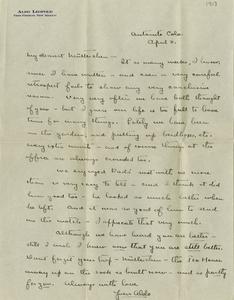 ALDO LEOPOLD
TRES PIEDRAS, NEW MEXICO
1913
Antonito Colo.
April 2.
My dearest Mütterchen –
It is many weeks, I know,
since I have written – and even – very careful
retrospect fails to show any very conclusive
reason. Very very often we have both thought
of you – but I guess our life is too full to leave
time for many things. Lately we have been
in the garden, and putting up bird boxes, etc.
every extra minute – and of course things at the
office are always crowded too.
We enjoyed Dad's visit with us more
than is very easy to tell – and I think it did
him good too – he looked so much better when
he left. And it was so good of him to send
us this machine – I appreciate that very much.
Although we have heard you are better –
still I wish I knew now that you are still better.
Dont forget your trip – Mütterchen – the Tea House
away up on the rocks is built now – and is partly
for you. Always with love
Your Aldo